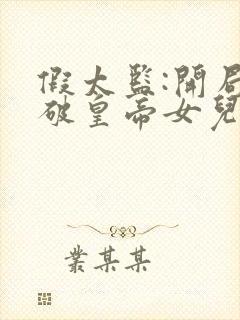 假太監:開局
破皇帝女兒
叢某某